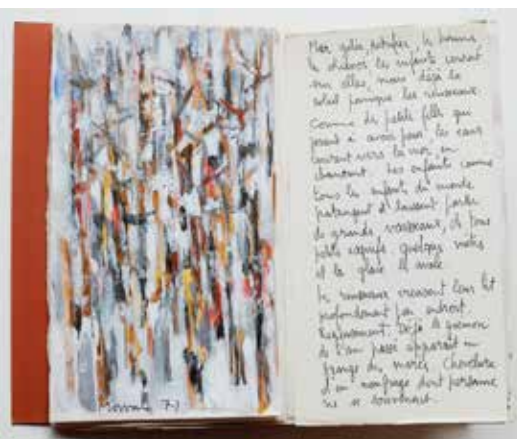 Mer gelée, petrifiée, les hommes,
les chevaux les enfants courent
sur elles, mais déjà le
soleil ponique les ruisseaux.
Comme de petite filles qui
jouent à avoir peur les eaux
courent vers la mer en
chantant. Les enfants comme
tous les enfants du monde
pataugent et laissent partir
de grands vaisseaux, et frous
petits esquifs quelques mètres
et la glace le noie
Le ruisseaux creusent leur lit
profondément par endroit.
Rageusement. Déjà le goemon
de l'an passé apparait en
frange des marées. Chevelure
d'un naufrage dont personne
ne se souviendrait.
71